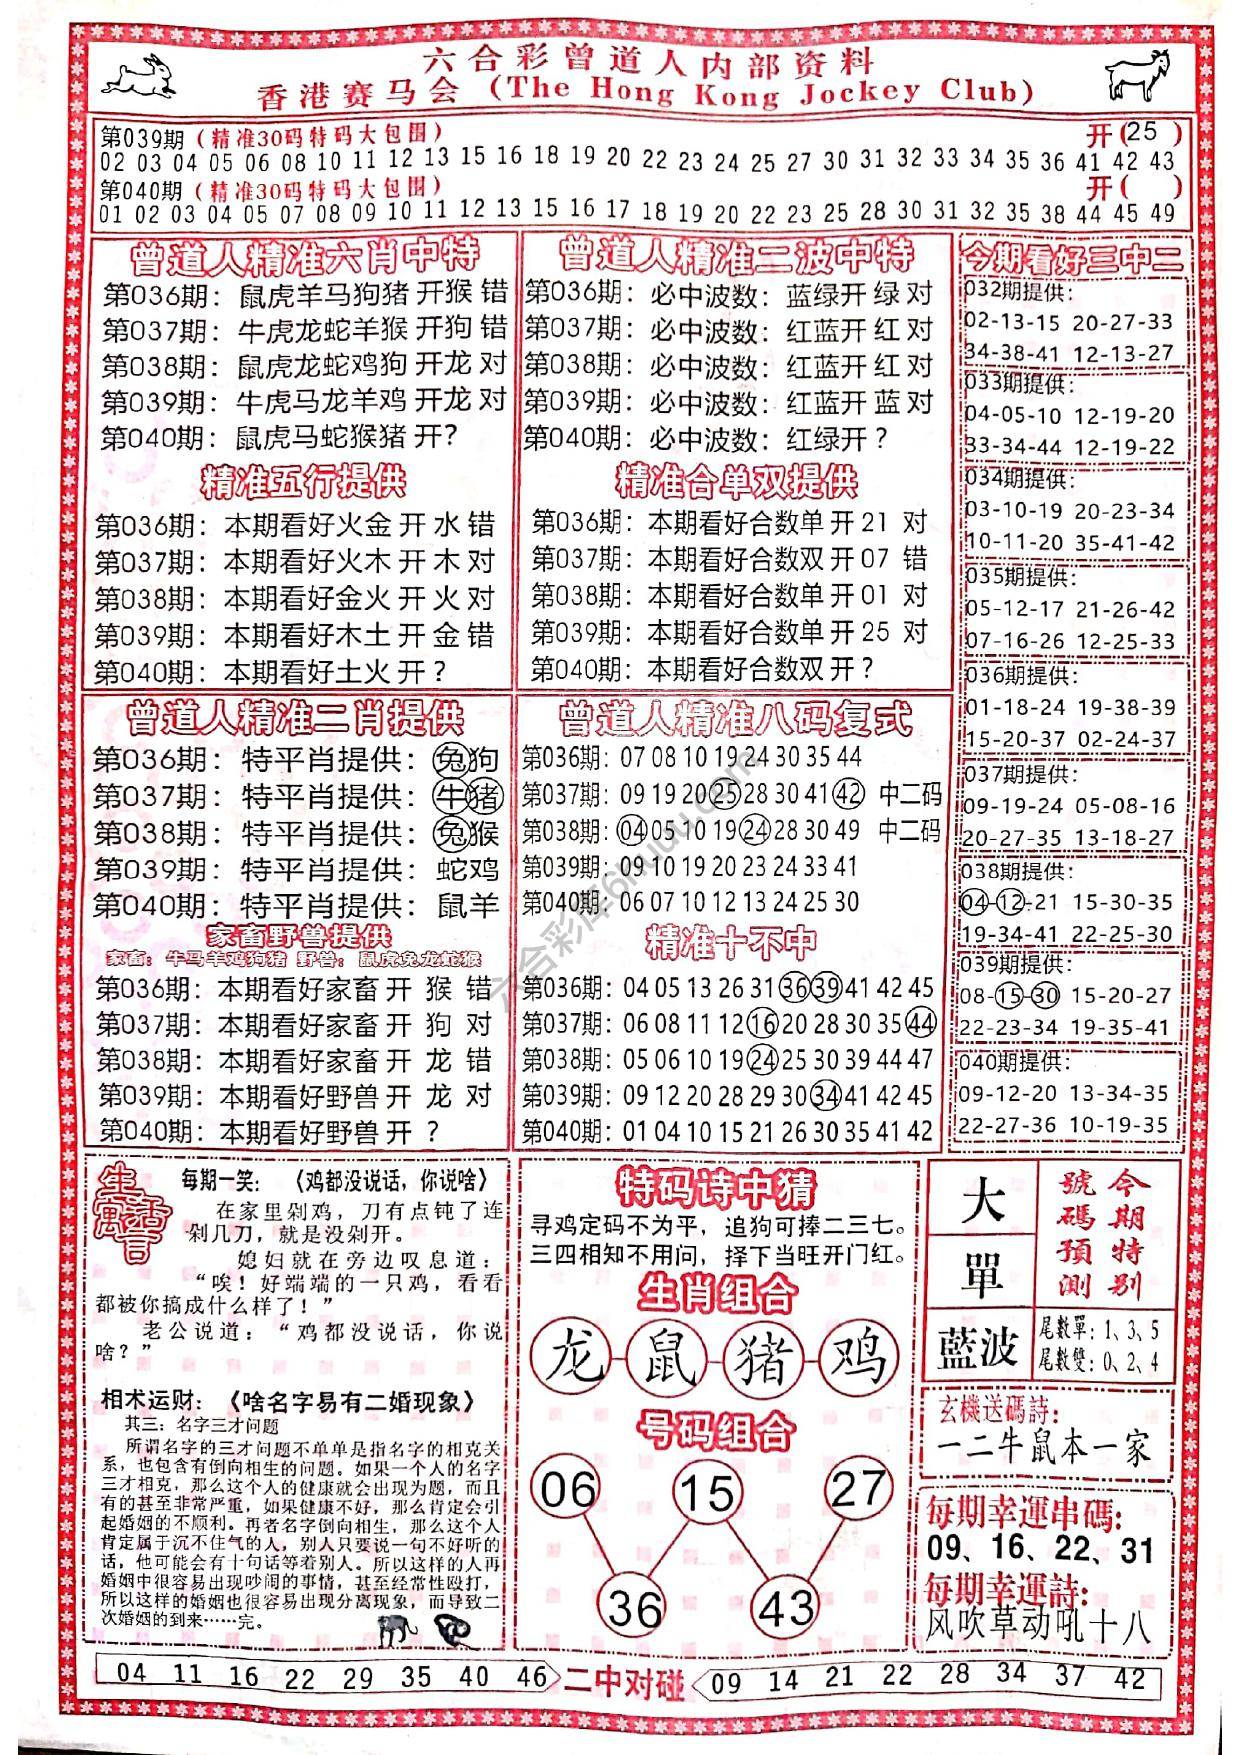 六合彩曾道人内部资料
香港赛马会 (The Hong Kong Jockey Club)
第039期 (精准30码特码大包围) 开(25 )
02 03 04 05 06 08 10 11 12 13 15 16 18 19 20 22 23 24 25 27 30 31 32 33 34 35 36 41 42 43
第040期 (精准30码特码大包围) 开( )
01 02 03 04 05 07 08 09 10 11 12 13 15 16 17 18 19 20 22 23 25 28 30 31 32 35 38 44 45 49
曾道人精准六肖中特
第036期：鼠虎羊马狗猪 开猴 错
第037期：牛虎龙蛇羊猴 开狗 错
第038期：鼠虎龙蛇鸡狗 开龙 对
第039期：牛虎马龙羊鸡 开龙 对
第040期：鼠虎马蛇猴猪 开？
精准五行提供
第036期：本期看好火金 开 水 错
第037期：本期看好火木 开 木 对
第038期：本期看好金火 开 火 对
第039期：本期看好木土 开 金 错
第040期：本期看好土火 开？
曾道人精准二波中特
第036期：必中波数：蓝绿开 绿 对
第037期：必中波数：红蓝开 红 对
第038期：必中波数：红蓝开 红 对
第039期：必中波数：红蓝开 蓝 对
第040期：必中波数：红绿开？
精准合单双提供
第036期：本期看好合数单 开 21 对
第037期：本期看好合数双 开 07 错
第038期：本期看好合数单 开 01 对
第039期：本期看好合数单 开 25 对
第040期：本期看好合数双 开？
今期看好三中二
032期提供：
02-13-15 20-27-33
34-38-41 12-13-27
033期提供：
04-05-10 12-19-20
33-34-44 12-19-22
034期提供：
03-10-19 20-23-34
10-11-20 35-41-42
035期提供：
05-12-17 21-26-42
07-16-26 12-25-33
036期提供：
01-18-24 19-38-39
15-20-37 02-24-37
037期提供：
09-19-24 05-08-16
20-27-35 13-18-27
038期提供：
04-12-21 15-30-35
19-34-41 22-25-30
039期提供：
08-15-30 15-20-27
22-23-34 19-35-41
040期提供：
09-12-20 13-34-35
22-27-36 10-19-35
曾道人精准二肖提供
第036期：特平肖提供：兔狗
第037期：特平肖提供：牛猪
第038期：特平肖提供：兔猴
第039期：特平肖提供：蛇鸡
第040期：特平肖提供：鼠羊
家畜野兽提供
家畜：牛马羊鸡狗猪 野兽：鼠虎兔龙蛇猴
第036期：本期看好家畜 开 猴 错
第037期：本期看好家畜 开 狗 对
第038期：本期看好家畜 开 龙 错
第039期：本期看好野兽 开 龙 对
第040期：本期看好野兽 开 ？
曾道人精准八码复式
第036期：07 08 10 19 24 30 35 44
第037期：09 19 20 25 28 30 41 42 中二码
第038期：04 05 10 19 24 28 30 49 中二码
第039期：09 10 19 20 23 24 33 41
第040期：06 07 10 12 13 24 25 30
精准十不中
第036期：04 05 13 26 31 36 39 41 42 45
第037期：06 08 11 12 16 20 28 30 35 44
第038期：05 06 10 19 24 25 30 39 44 47
第039期：09 12 20 28 29 30 34 41 42 45
第040期：01 04 10 15 21 26 30 35 41 42
六合彩库6huuu.com
生活寓言
每期一笑：《鸡都没说话，你说啥》
在家里剁鸡，刀有点钝了连
剁几刀，就是没剁开。
媳妇就在旁边叹息道：
“唉！好端端的一只鸡，看看
都被你搞成什么样了！”
老公说道：“鸡都没说话，你说
啥？”
相术运财：《啥名字易有二婚现象》
其三：名字三才问题
所谓名字的三才问题不单单是指名字的相克关
系，也包含有倒向相生的问题。如果一个人的名字
三才相克，那么这个人的健康就会出现为题，而且
有的甚至非常严重，如果健康不好，那么肯定会引
起婚姻的不顺利。再者名字倒向相生，那么这个人
肯定属于沉不住气的人，别人只要说一句不好听的
话，他可能会有十句话等着别人。所以这样的人再
婚姻中很容易出现吵闹的事情，甚至经常性殴打，
所以这样的婚姻也很容易出现分离现象，而导致二
次婚姻的到来……完。
特码诗中猜
寻鸡定码不为平，追狗可捧二三七。
三四相知不用问，择下当旺开门红。
生肖组合
龙 鼠 猪 鸡
号码组合
06 15 27
36 43
大
單
藍波
今期特别
號碼預測
尾數單：1、3、5
尾數雙：0、2、4
玄機送碼詩：
一二牛鼠本一家
每期幸運串碼：
09、16、22、31
每期幸運詩：
风吹草动吼十八
04 11 16 22 29 35 40 46 二中对碰 09 14 21 22 28 34 37 42